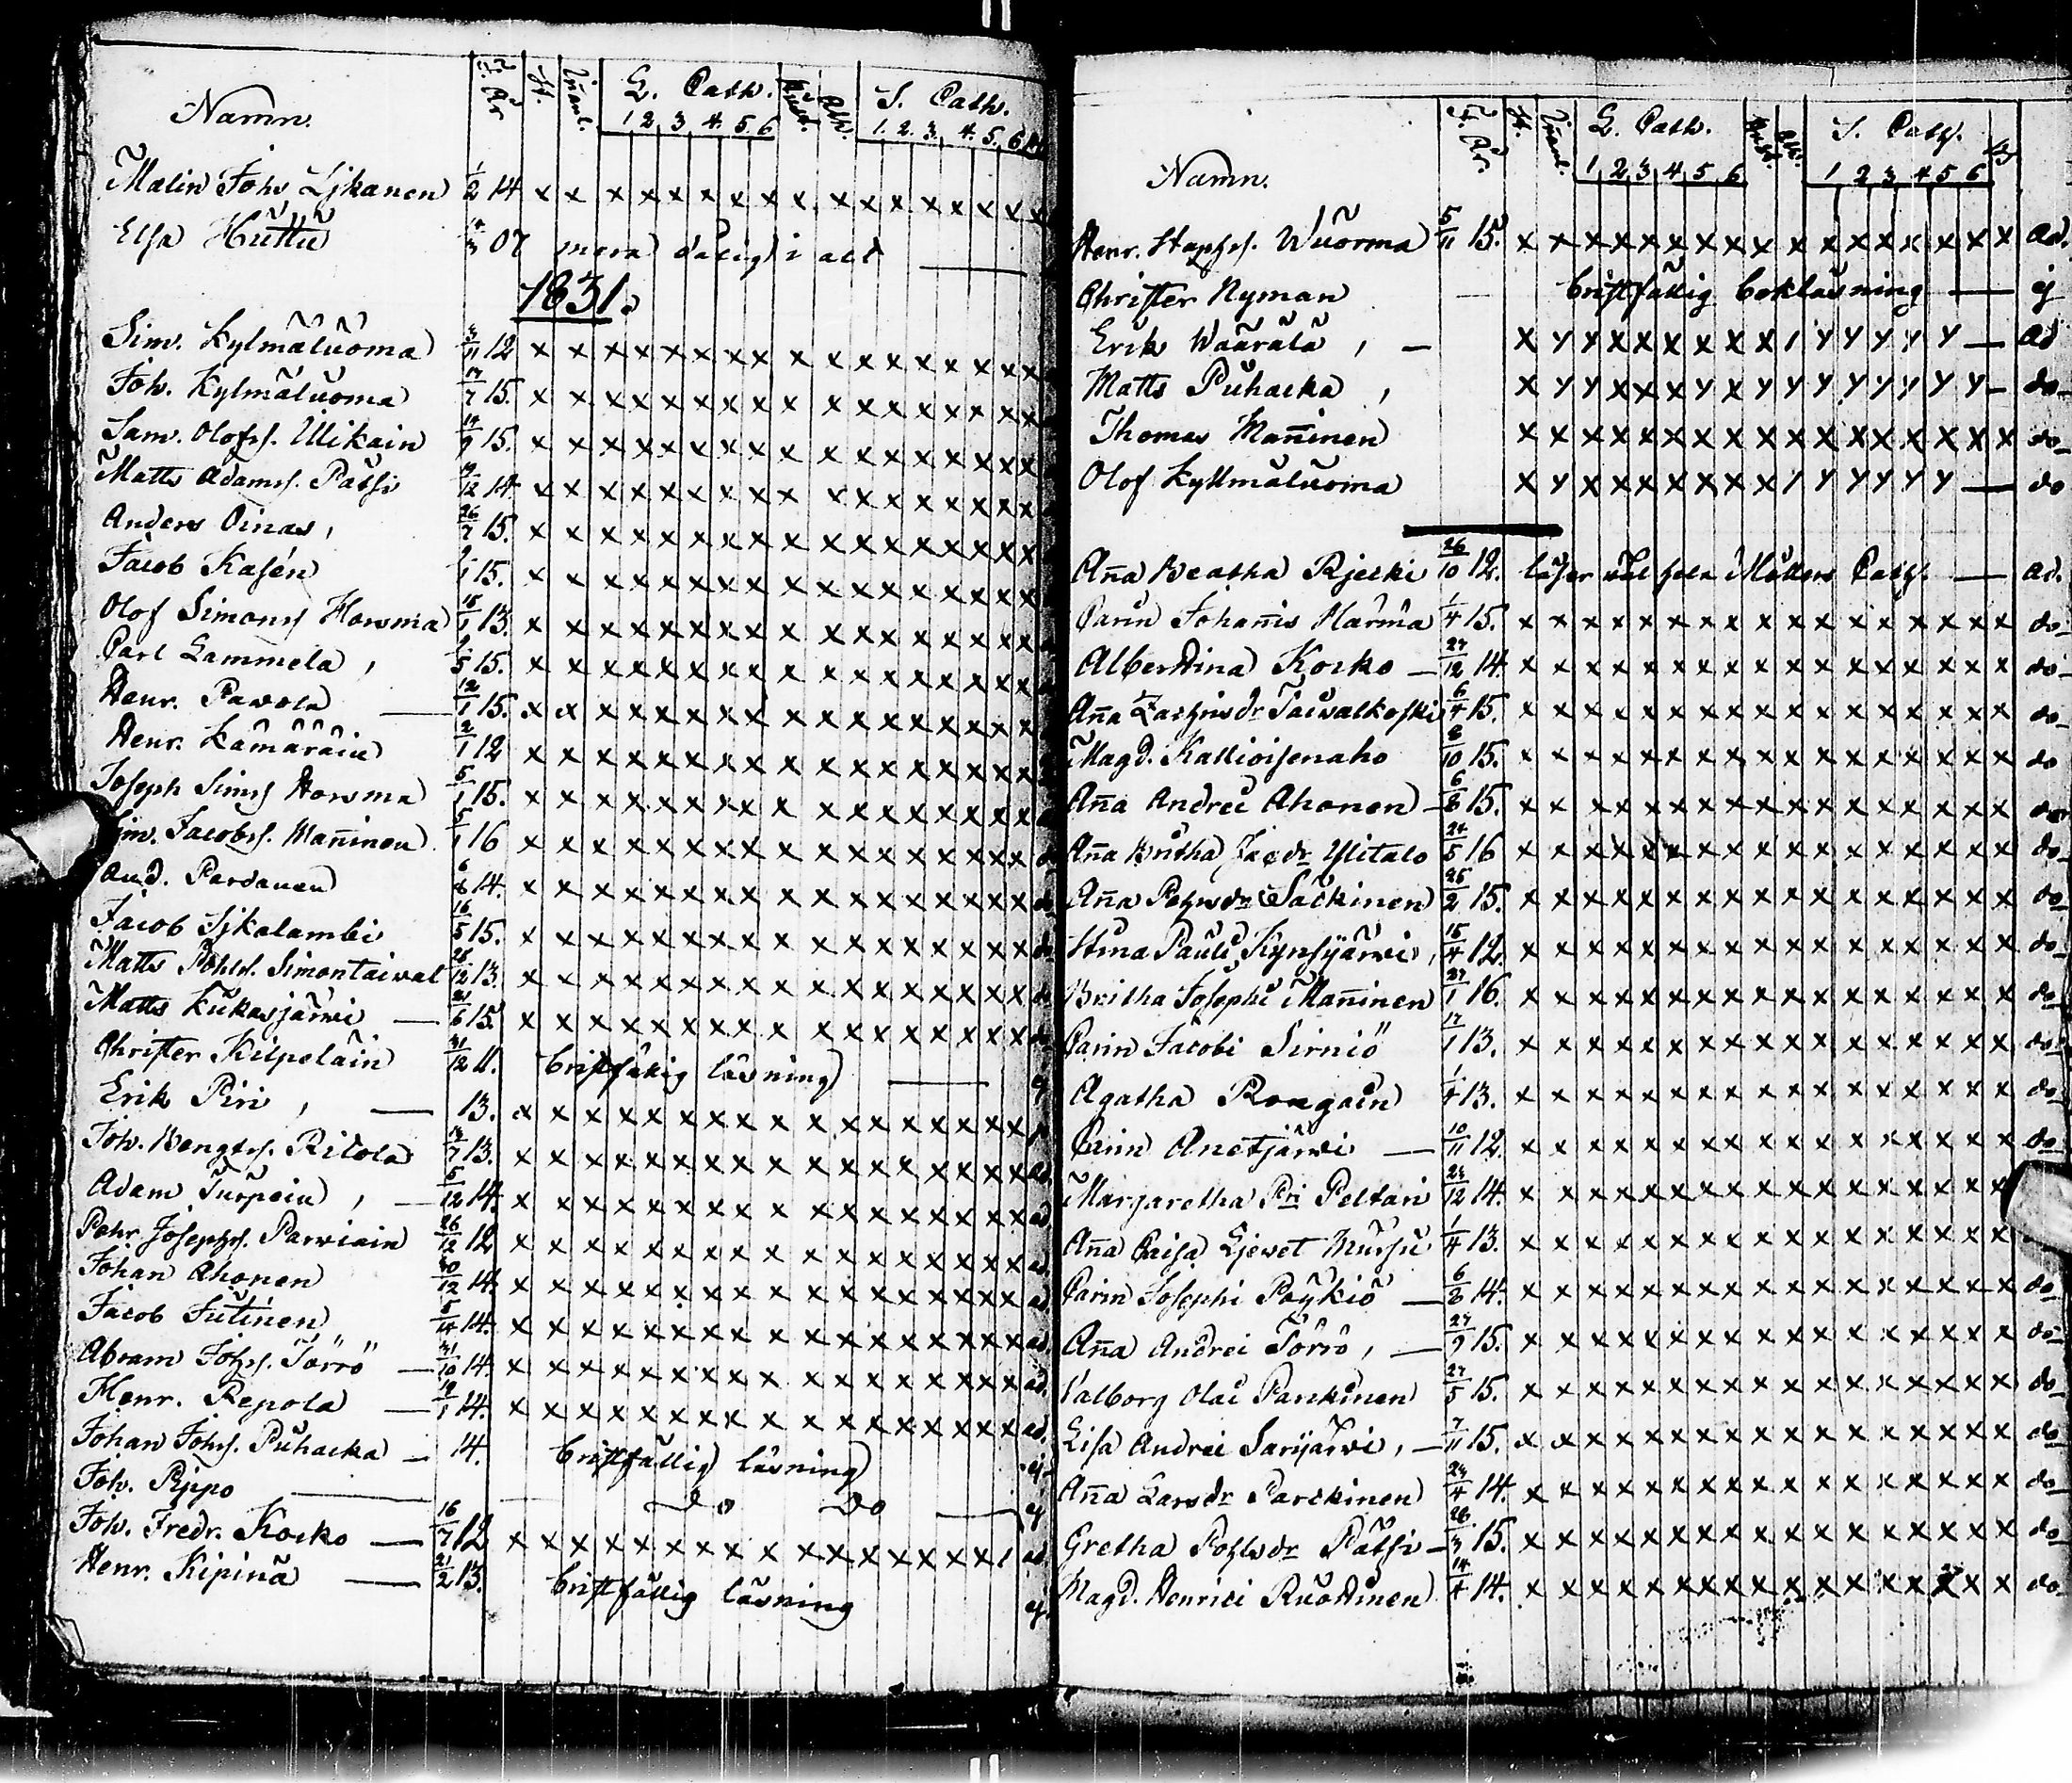 Namn. F. År St. Innanl. L. Cath. Hust. Ath. S. Cath.
1 2 3 4. 5. 6 1. 2. 3. 4. 5. 6
Malin Joh. Ljkanen 1/2 14 x x x x x x x x x x x x x x x x
Elsa Huttu 07 mera dålig i all —
1831.
Sim. Kylmäluoma 3/11 12 x x x x x x x x x x x x x x x x
Joh. Kylmäluoma 17/7 15. x x x x x x x x x x x x x x x x
Sam. Olofss. Ulikain 14/9 15. x x x x x x x x x x x x x x x x
Matts Adamss. Pätsi 12 14 x x x x x x x x x x x x x x x x
Anders Oinas, 26/7 15. x x x x x x x x x x x x x x x x
Jacob Kasén 15. x x x x x x x x x x x x x x x x
Olof Simonss Horsma 15/1 13. x x x x x x x x x x x x x x x x
Carl Lammela, 5 15. x x x x x x x x x x x x x x x x
Henr. Pawola — 12/1 15. x x x x x x x x x x x x x x x x
Henr. Kämäräin 2/1 12 x x x x x x x x x x x x x x x x
Joseph Simss Horsma 5/1 15. x x x x x x x x x x x x x x x x
Sim. Jacobss. Mañinen 5/1 16 x x x x x x x x x x x x x x x x
And. Pardanen 6/8 14. x x x x x x x x x x x x x x x x
Jacob Sjkalambi 16/5 15. x x x x x x x x x x x x x x x x
Matts Pohlss. Simontaival 28/12 13. x x x x x x x x x x x x x x x x
Matts Kukasjärvi — 21/6 15. x x x x x x x x x x x x x x x x
Christer Kilpeläin 31/12 11. bristfälig läsning — ej
Erik Piri, — 13. x x x x x x x x x x x x x x x x
Joh. Bengtss. Ritola 13/7 13. x x x x x x x x x x x x x x x x ad.
Adam Turpein, — 5/12 14. x x x x x x x x x x x x x x x x ad.
Pehr Josephss. Parviain 26/12 12 x x x x x x x x x x x x x x x x ad.
Johan Ahonen 30/12 14. x x x x x x x x x x x x x x x x ad.
Jacob Jutinen 5/14 14. x x x x x x x x x x x x x x x x ad.
Abram Johss. Törrö — 31/10 14. x x x x x x x x x x x x x x x x ad.
Henr. Repola — 19/1 14. x x x x x x x x x x x x x x x x ad.
Johan Johss. Puhacka — 14. bristfällig läsning ej
Joh. Rjpo — Do Do — ej
Joh. Fredr. Kocko — 16/7 12 x x x x x x x x x x x x x x x / ad.
Henr. Kipinä — 21/2 13. bristfällig läsning ej.
Namn. F. År. St. Innanl. L. Cath. Hust. Ath. S. Cath.
1 2 3 4 5 6 1 2 3 4 5 6
Henr. Staphss. Wuorma 5/11 15. x x x x x x x x x x x x x x x x x ad.
Christer Nyman — bristfälig bokläsning — ej
Erik Wäärälä, — x y y x x x x x x x / y y y y y — ad
Matts Puhacka, x y y x x x y x y y y y y y y y — do
Thomas Mañinen x x x x x x x x x x x x x x x x x do
Olof Kyllmäluoma x y x x x x x x x x / y y y y y — do
Aña Beatha Rjecki 26/10 12. läser väl hela Möllers Cath. — ad.
Carin Johañis Harma 1/4 15. x x x x x x x x x x x x x x x x x do
Albertina Kocko — 27/12 14. x x x x x x x x x x x x x x x x x do
Aña Zachrisdr Taivalkoski 6/4 15. x x x x x x x x x x x x x x x x x do
Magd. Kallioisenaho 8/10 15. x x x x x x x x x x x x x x x x x do
Aña Andrei Ahonen — 6/8 15. x x x x x x x x x x x x x x x x x do
Aña Britha Jacdr Ylitalo 24/5 16 x x x x x x x x x x x x x x x x x do
Aña Pehrsdr Säckinen 25/2 15. x x x x x x x x x x x x x x x x x do
Stina Pauli Kynsijärvi, 15/4 12. x x x x x x x x x x x x x x x x x do
Britha Josephi Mañinen 27/1 16. x x x x x x x x x x x x x x x x x do
Carin Jacobi Sirniö 17/1 13. x x x x x x x x x x x x x x x x x do
Agatha Rongain 1/4 13. x x x x x x x x x x x x x x x x x do
Carin Anetjärvi — 10/11 12. x x x x x x x x x x x x x x x x x do
Margaretha Pri Peltari 24/12 14. x x x x x x x x x x x x x x x x x
Aña Caisa Ljevet Mursu 1/4 13. x x x x x x x x x x x x x x x x x
Carin Josephi Pöykiö — 6/2 14. x x x x x x x x x x x x x x x x x do
Aña Andrei Törrö, — 27/9 15. x x x x x x x x x x x x x x x x x do
Valborg Olai Parckinen 27/5 15. x x x x x x x x x x x x x x x x x do
Lisa Andrei Sarijärvi, — 7/11 15. x x x x x x x x x x x x x x x x x do
Aña Larsdr Parckinen 24/4 14. x x x x x x x x x x x x x x x x x do
Gretha Pohlsdr Pätsi — 26/3 15. x x x x x x x x x x x x x x x x x do
Magd. Henrici Ruottinen 14/4 14. x x x x x x x x x x x x x x x x x do